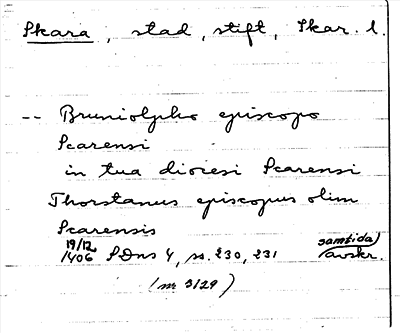 Skara, stad, stift, Skar. l.
-- Bruniolpho episcopo
Scarensi
in tua diocesi Scarensi
Thorstanus episcopus olim
Scarensis
19/12 1406 SDns 4, ss. 230, 231 samtida) avskr.
(nr 3129)